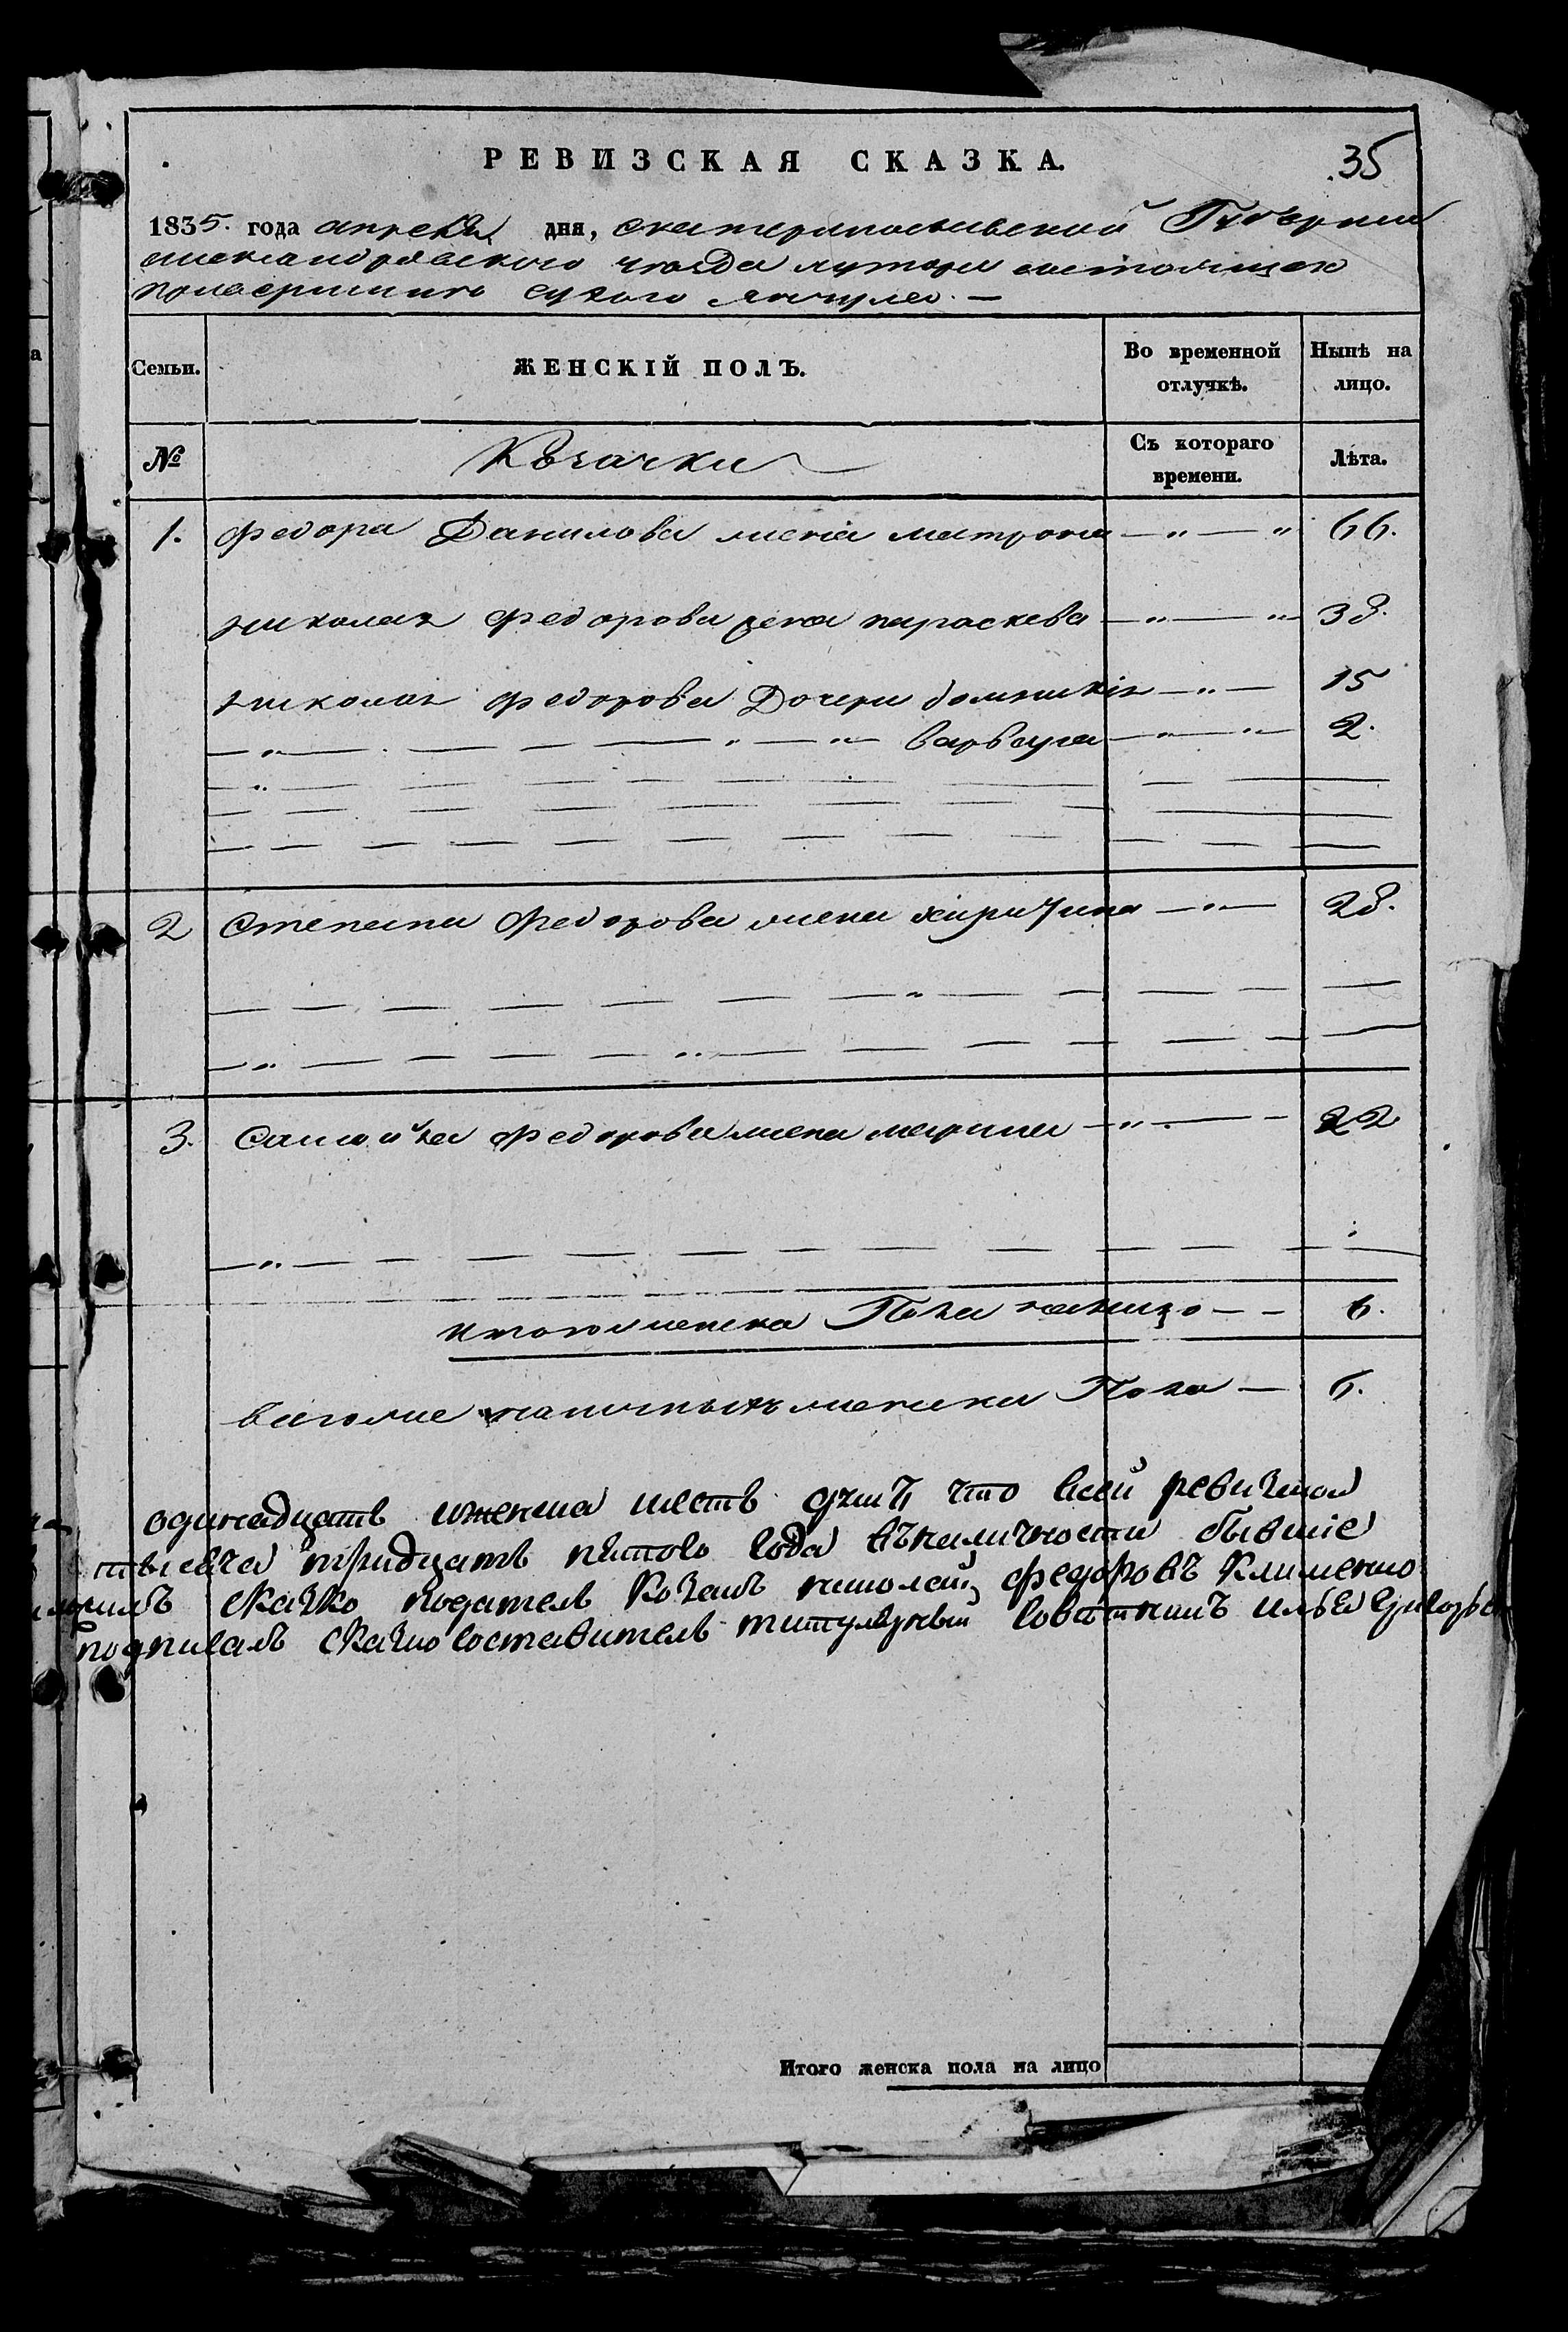 РЕВИЗСКАЯ СКАЗКА.
35
1835. года апреля дня, екатеринославской Губернии
александровского уезда хутора состоящаго
при вершине сухого янчула. —
Семьи.
ЖЕНСКІЙ ПОЛЪ.
Во временной отлучкѣ.
Нынѣ на лицо.
№
Козачки
Съ котораго времени.
Лѣта.
1. Федора Данилова жена матрона — „ — „ 66.
николая Федорова жена параскева — „ — „ 38.
николая Федорова Дочери домникія — „ — 15
— „ — — — — „ — „ — варвара — „ — „ — 2.
2 Степана Федорова жена — „ — 28.
3. Самойла Федорова жена марина — „ — 22
Итого женска Пола налицо — — 6.
наличныхъ женска Пола — 6.
одинадцать и женска шесть душъ что всей ревизкой
тридцать пятого года въ наличности бывшіе
сказко податель Козакъ николай федоровъ Клименко
подписалъ сказко составитель титулярный советникъ илья
Итого женска пола на лицо